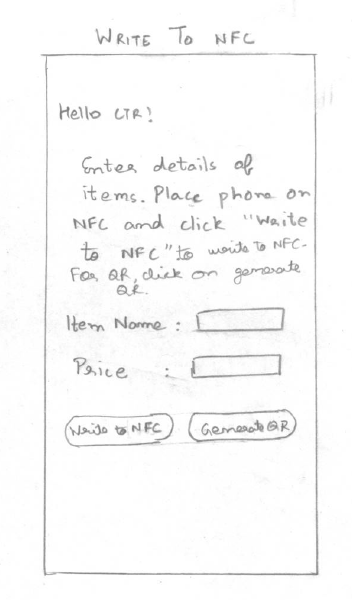 WRITE TO NFC
Hello CTR!
Enter details of
items. Place phone on
NFC and click "Write
to NFC" to write to NFC.
For QR, click on generate
QR.
Item Name :
Price :
Write to NFC
Generate QR